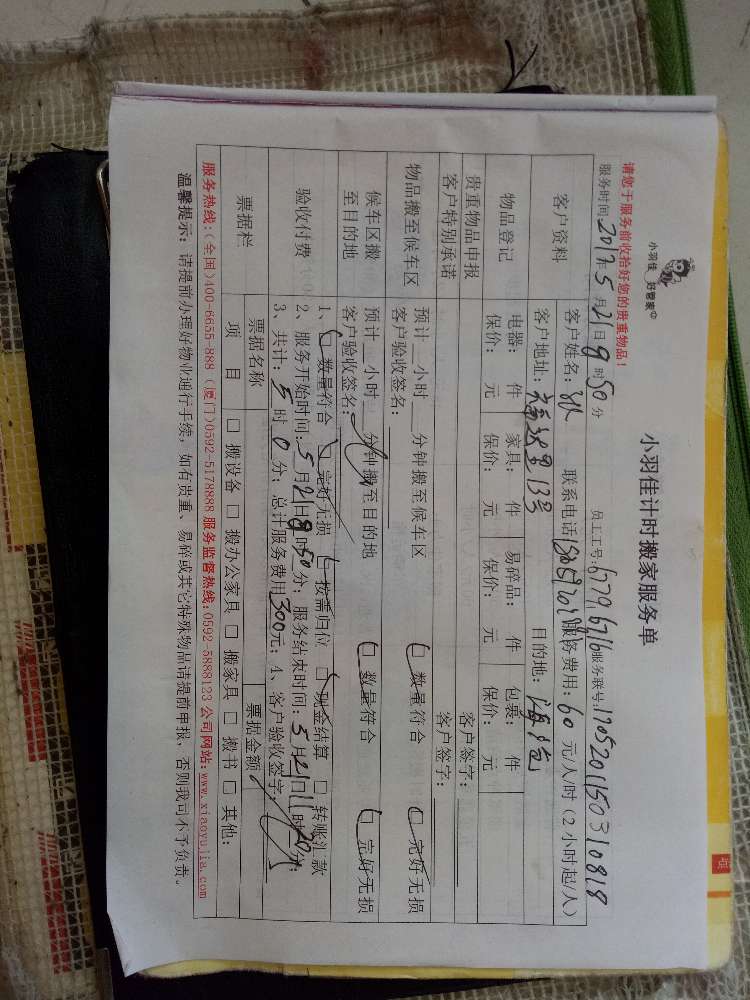 小羽佳 好管家
小羽佳计时搬家服务单
请您于服务前收拾好您的贵重物品！
员工工号：6779，6716 服务联号：170520115031 0818
服务时间 2017年 5月 21日 9时 50分
客户资料
客户姓名：张 联系电话 服务费用：60 元/人/时（2 小时起/人）
客户地址： 里13号 目的地：
物品登记
电器： 件 家具： 件 易碎品： 件 包裹： 件
保价： 元 保价： 元 保价： 元 保价： 元
贵重物品申报 客户签字：
客户特别承诺 客户签字：
物品搬至候车区
预计 小时 分钟搬至候车区 □ 数量符合 □ 完好无损
客户验收签名：
候车区搬至目的地
预计 小时 分钟搬至目的地 □ 数量符合 □ 完好无损
客户验收签名：
验收付费
1、□ 数量符合 □ 完好无损 □ 按需归位 □ 现金结算 □ 转账汇款
2、服务开始时间：5月21日9时50分；服务结束时间：5月21日11时 分；
3、共计：5时0分；总计服务费用300元；4、客户验收签字：
票据栏
票据名称 票据金额
项 目 □ 搬设备 □ 搬办公家具 □ 搬家具 □ 搬书 □ 其他:
服务热线:(全国)400-6655-888 (厦门)0592-5178888 服务监督热线:0592-5888123 公司网站:www.xiaoyujia.com
温馨提示：请提前办理好物业通行手续，如有贵重、易碎或其它特殊物品请提前申报，否则我司不予负责。